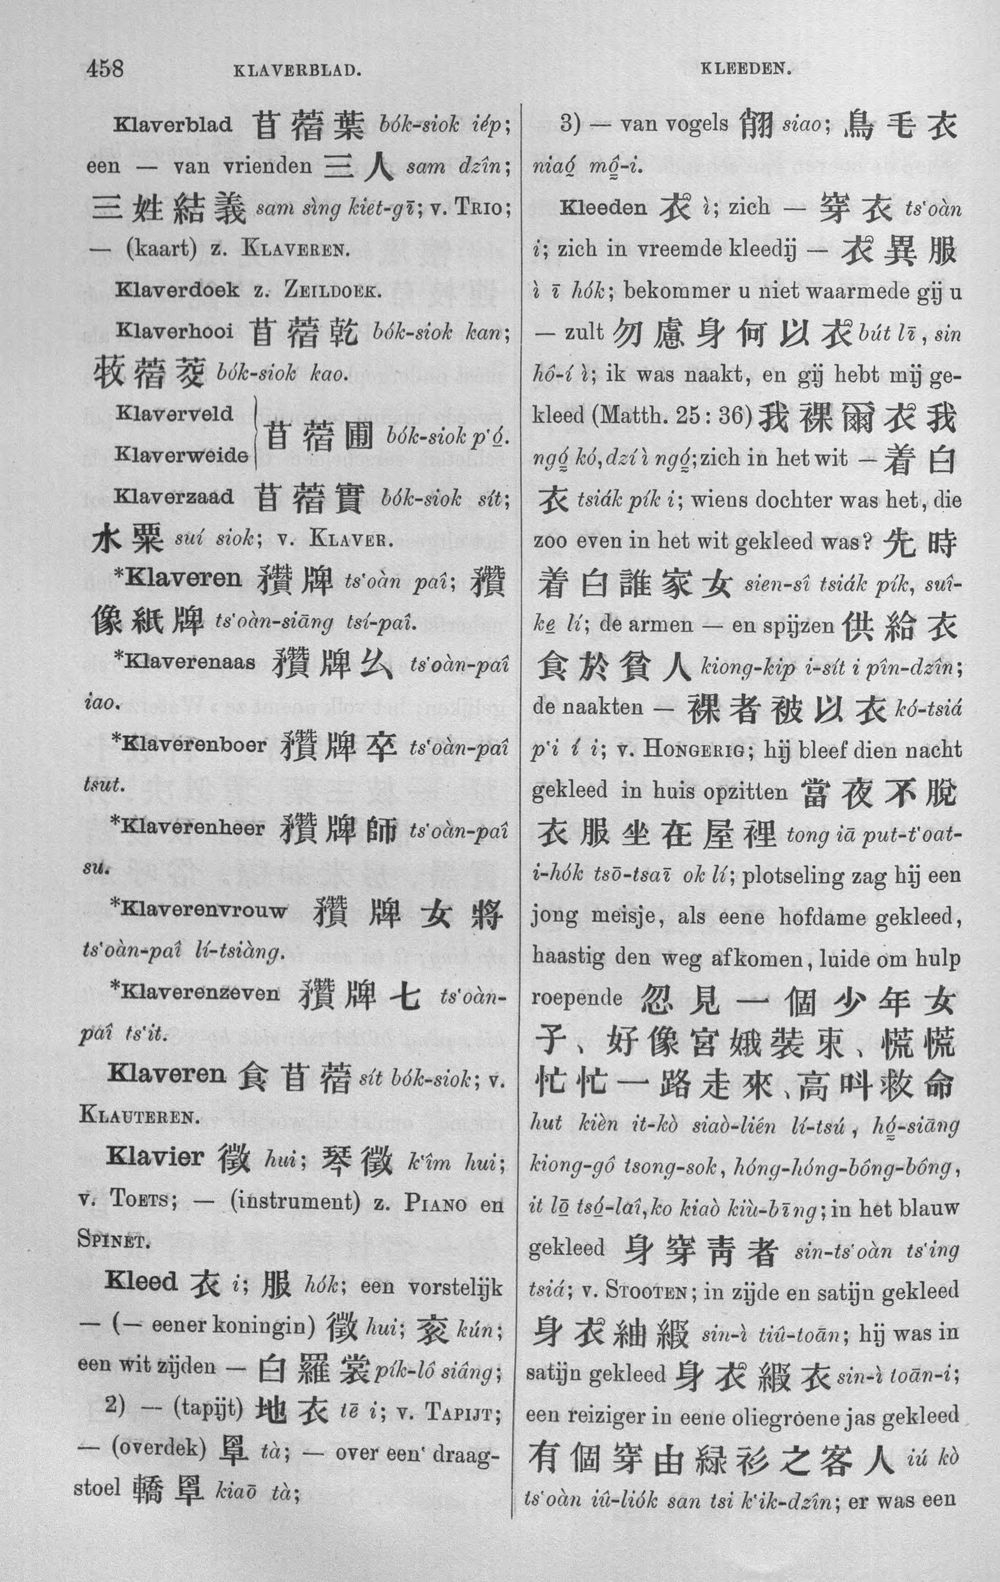 458 KLAVERBLAD. KLEEDEN.
Klaverblad 苜蓿葉 bók-siok iép;
een — van vrienden 三人 sam dzîn;
三姓結義 sam sìng kiet-gī; v. TRIO;
— (kaart) z. KLAVEREN.
Klaverdoek z. ZEILDOEK.
Klaverhooi 苜蓿乾 bók-siok kan;
牧蓿茭 bók-siok kao.
Klaverveld
Klaverweide 苜蓿圃 bók-siok p'ó.
Klaverzaad 苜蓿實 bók-siok sít;
水粟 suí siok; v. KLAVER.
*Klaveren 穳牌 ts'oàn paî; 穳
像紙牌 ts'oàn-siāng tsí-paî.
*Klaverenaas 穳牌幺 ts'oàn-paî
iao.
*Klaverenboer 穳牌卒 ts'oàn-paî
tsut.
*Klaverenheer 穳牌師 ts'oàn-paî
su.
*Klaverenvrouw 穳牌女將
ts'oàn-paî lí-tsiàng.
*Klaverenzeven 穳牌七 ts'oàn-
paî ts'it.
Klaveren 食苜蓿 sít bók-siok; v.
KLAUTEREN.
Klavier 徽 hui; 琴徽 k'îm hui;
v. TOETS; — (instrument) z. PIANO en
SPINET.
Kleed 衣 i; 服 hók; een vorstelijk
— (— eener koningin) 徽 hui; 袞 kún;
een wit zijden — 白羅裳 pík-lô siâng;
2) — (tapijt) 地衣 tē i; v. TAPIJT;
— (overdek) 罩 tà; — over een draag-
stoel 轎罩 kiaō tà;
3) — van vogels 翛 siao; 鳥毛衣
niaó mô-i.
Kleeden 衣 ì; zich — 穿衣 ts'oàn
i; zich in vreemde kleedij — 衣異服
ì ī hók; bekommer u niet waarmede gij u
— zult 勿慮身何以衣 bút lī, sin
hô-í ì; ik was naakt, en gij hebt mij ge-
kleed (Matth. 25: 36) 我裸爾衣我
ngó kó, dzí ì ngó; zich in het wit — 着白
衣 tsiák pík i; wiens dochter was het, die
zoo even in het wit gekleed was? 先時
着白誰家女 sien-sî tsiák pík, suî-
ke lí; de armen — en spijzen 供給衣
食於貧人 kiong-kip i-sít i pîn-dzîn;
de naakten — 裸者被以衣 kó-tsiá
p'i í i; v. HONGERIG; hij bleef dien nacht
gekleed in huis opzitten 當夜不脫
衣服坐在屋裡 tong iā put-t'oat-
i-hók tsō-tsaī ok lí; plotseling zag hij een
jong meisje, als eene hofdame gekleed,
haastig den weg afkomen, luide om hulp
roepende 忽見一個少年女
子、好像宮娥裝束、慌慌
忙忙一路走來、高叫救命
hut kièn it-kò siaò-liên lí-tsú, hó-siāng
kiong-gô tsong-sok, hóng-hóng-bông-bông,
it lō tsó-laî, ko kiaò kiù-bīng; in het blauw
gekleed 身穿青者 sin-ts'oàn ts'ing
tsiá; v. STOOTEN; in zijde en satijn gekleed
身衣紬緞 sin-ì tiû-toān; hij was in
satijn gekleed 身衣緞衣 sin-ì toān-i;
een reiziger in eene oliegroene jas gekleed
有個穿由綠衫之客人 iú kò
ts'oàn iû-liók san tsi k'ik-dzîn; er was een